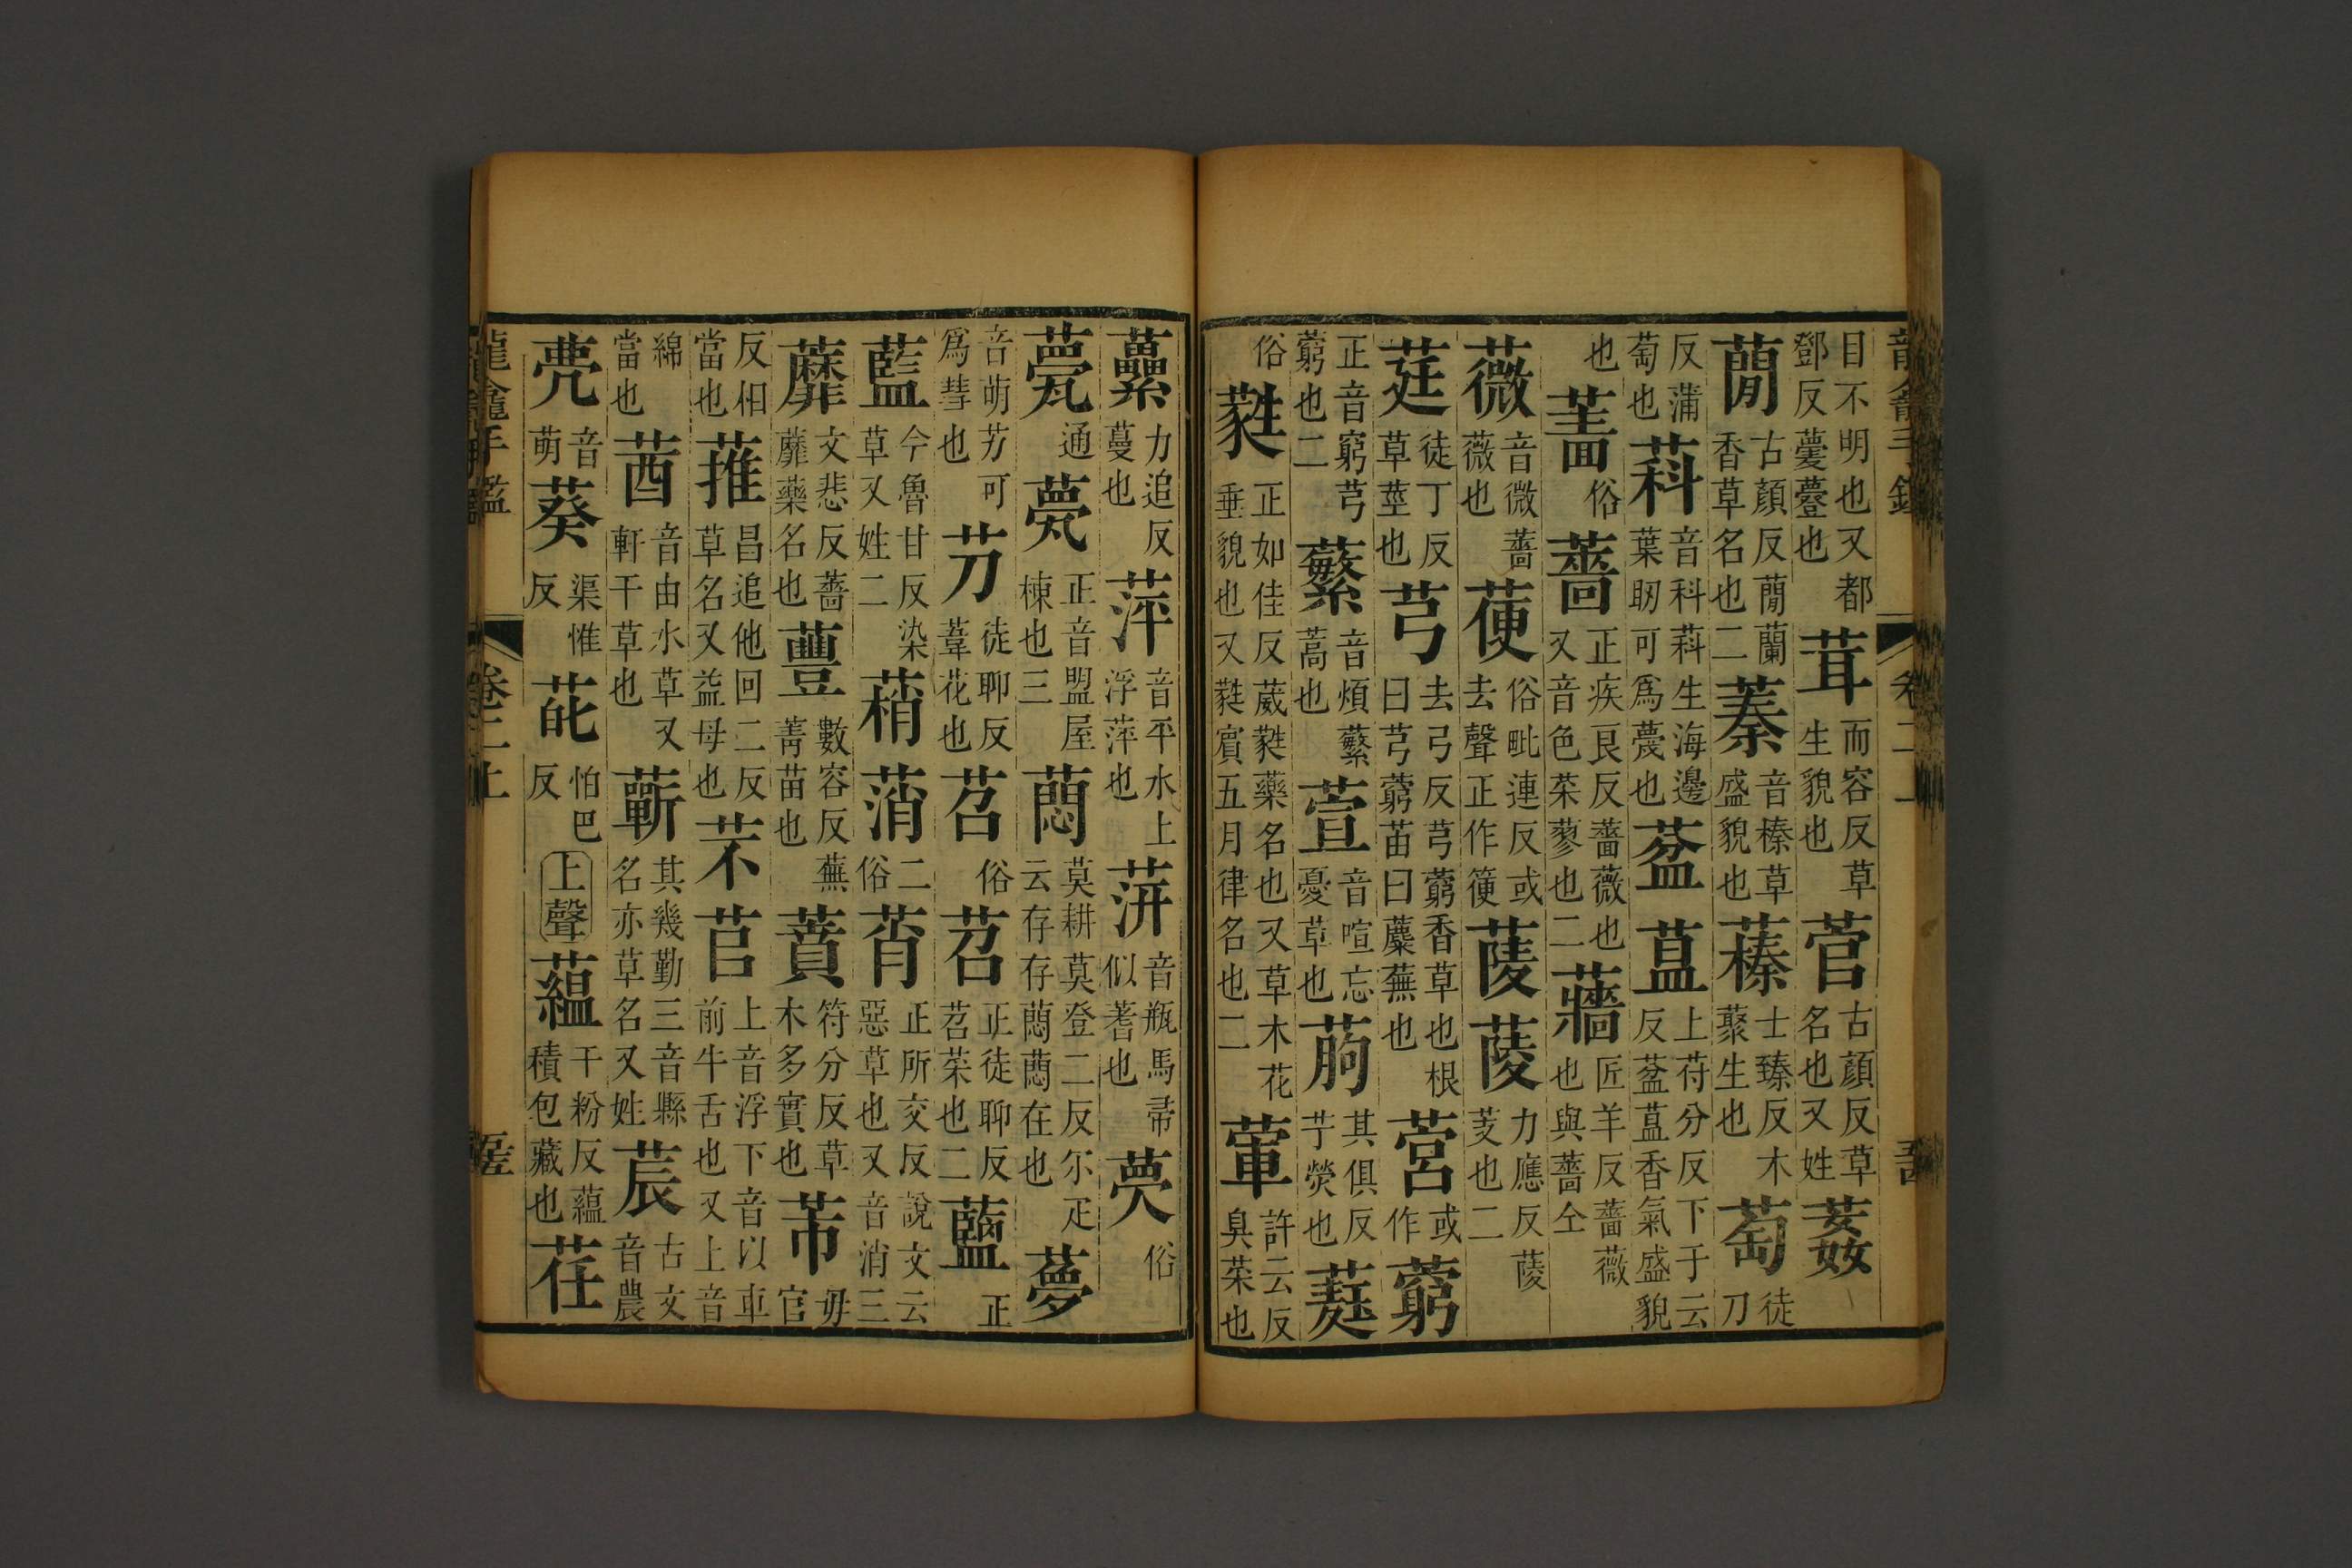 目不明也又都鄧反薎薹也茸而容反草生貌也菅古顏反草名也又姓葌
蕳古顏反蕳蘭香草名也二蓁音榛草盛貌也蓁士臻反木藂生也萄徒刀
反蒲萄也萪音科萪生海邊葉䏔可爲薎也葐蒀上苻分反下于云反葐蒀香氣盛貌
也薔俗薔正疾良反薔薇也又音色菜蓼也二蘠匠羊反薔薇也與薔仝
薇音微薔薇也㛹俗毗連反或去聲正作箯蔆菱力應反蔆芰也二
莛徒丁反草莖也芎去弓反芎藭香草也根曰芎藭苗曰麋蕪也营或作藭
正音窮芎藭也二蘩音煩蘩蒿也萱音喧忘憂草也蒟其俱反芋熒也莛
俗蕤正如佳反葳蕤藥名也又草木花垂貌也又蕤賓五月律名也二葷許云反臭菜也
虆力追反蔓也萍音平水上浮萍也荓音瓶馬帚似蓍也薨俗
甍通甍正音盟屋棟也三䒪莫耕莫登二反尓疋云存存䒪䒪在也夢
音萌艻可爲彗也芀徒聊反葦花也苕俗苕正徒聊反苕菜也二藍正
藍今魯甘反染草又姓二䔠萷二俗莦正所交反說文云惡草也又音消三
蘼文悲反薔蘼藥名也蘴數容反蕪菁苗也蕡符分反草木多實也芾毋官
反相當也蓷昌追他回二反草名又益母也芣苢上音浮下音以車前牛舌也又上音
綿當也莤音由水草又軒干草也蘄其幾勤三音縣名亦草名又姓䢅古文音農
薨音萌葵渠惟反芘怕巴反上聲蘊于粉反蘊積包藏也荏
龍龕手鑑
卷二上